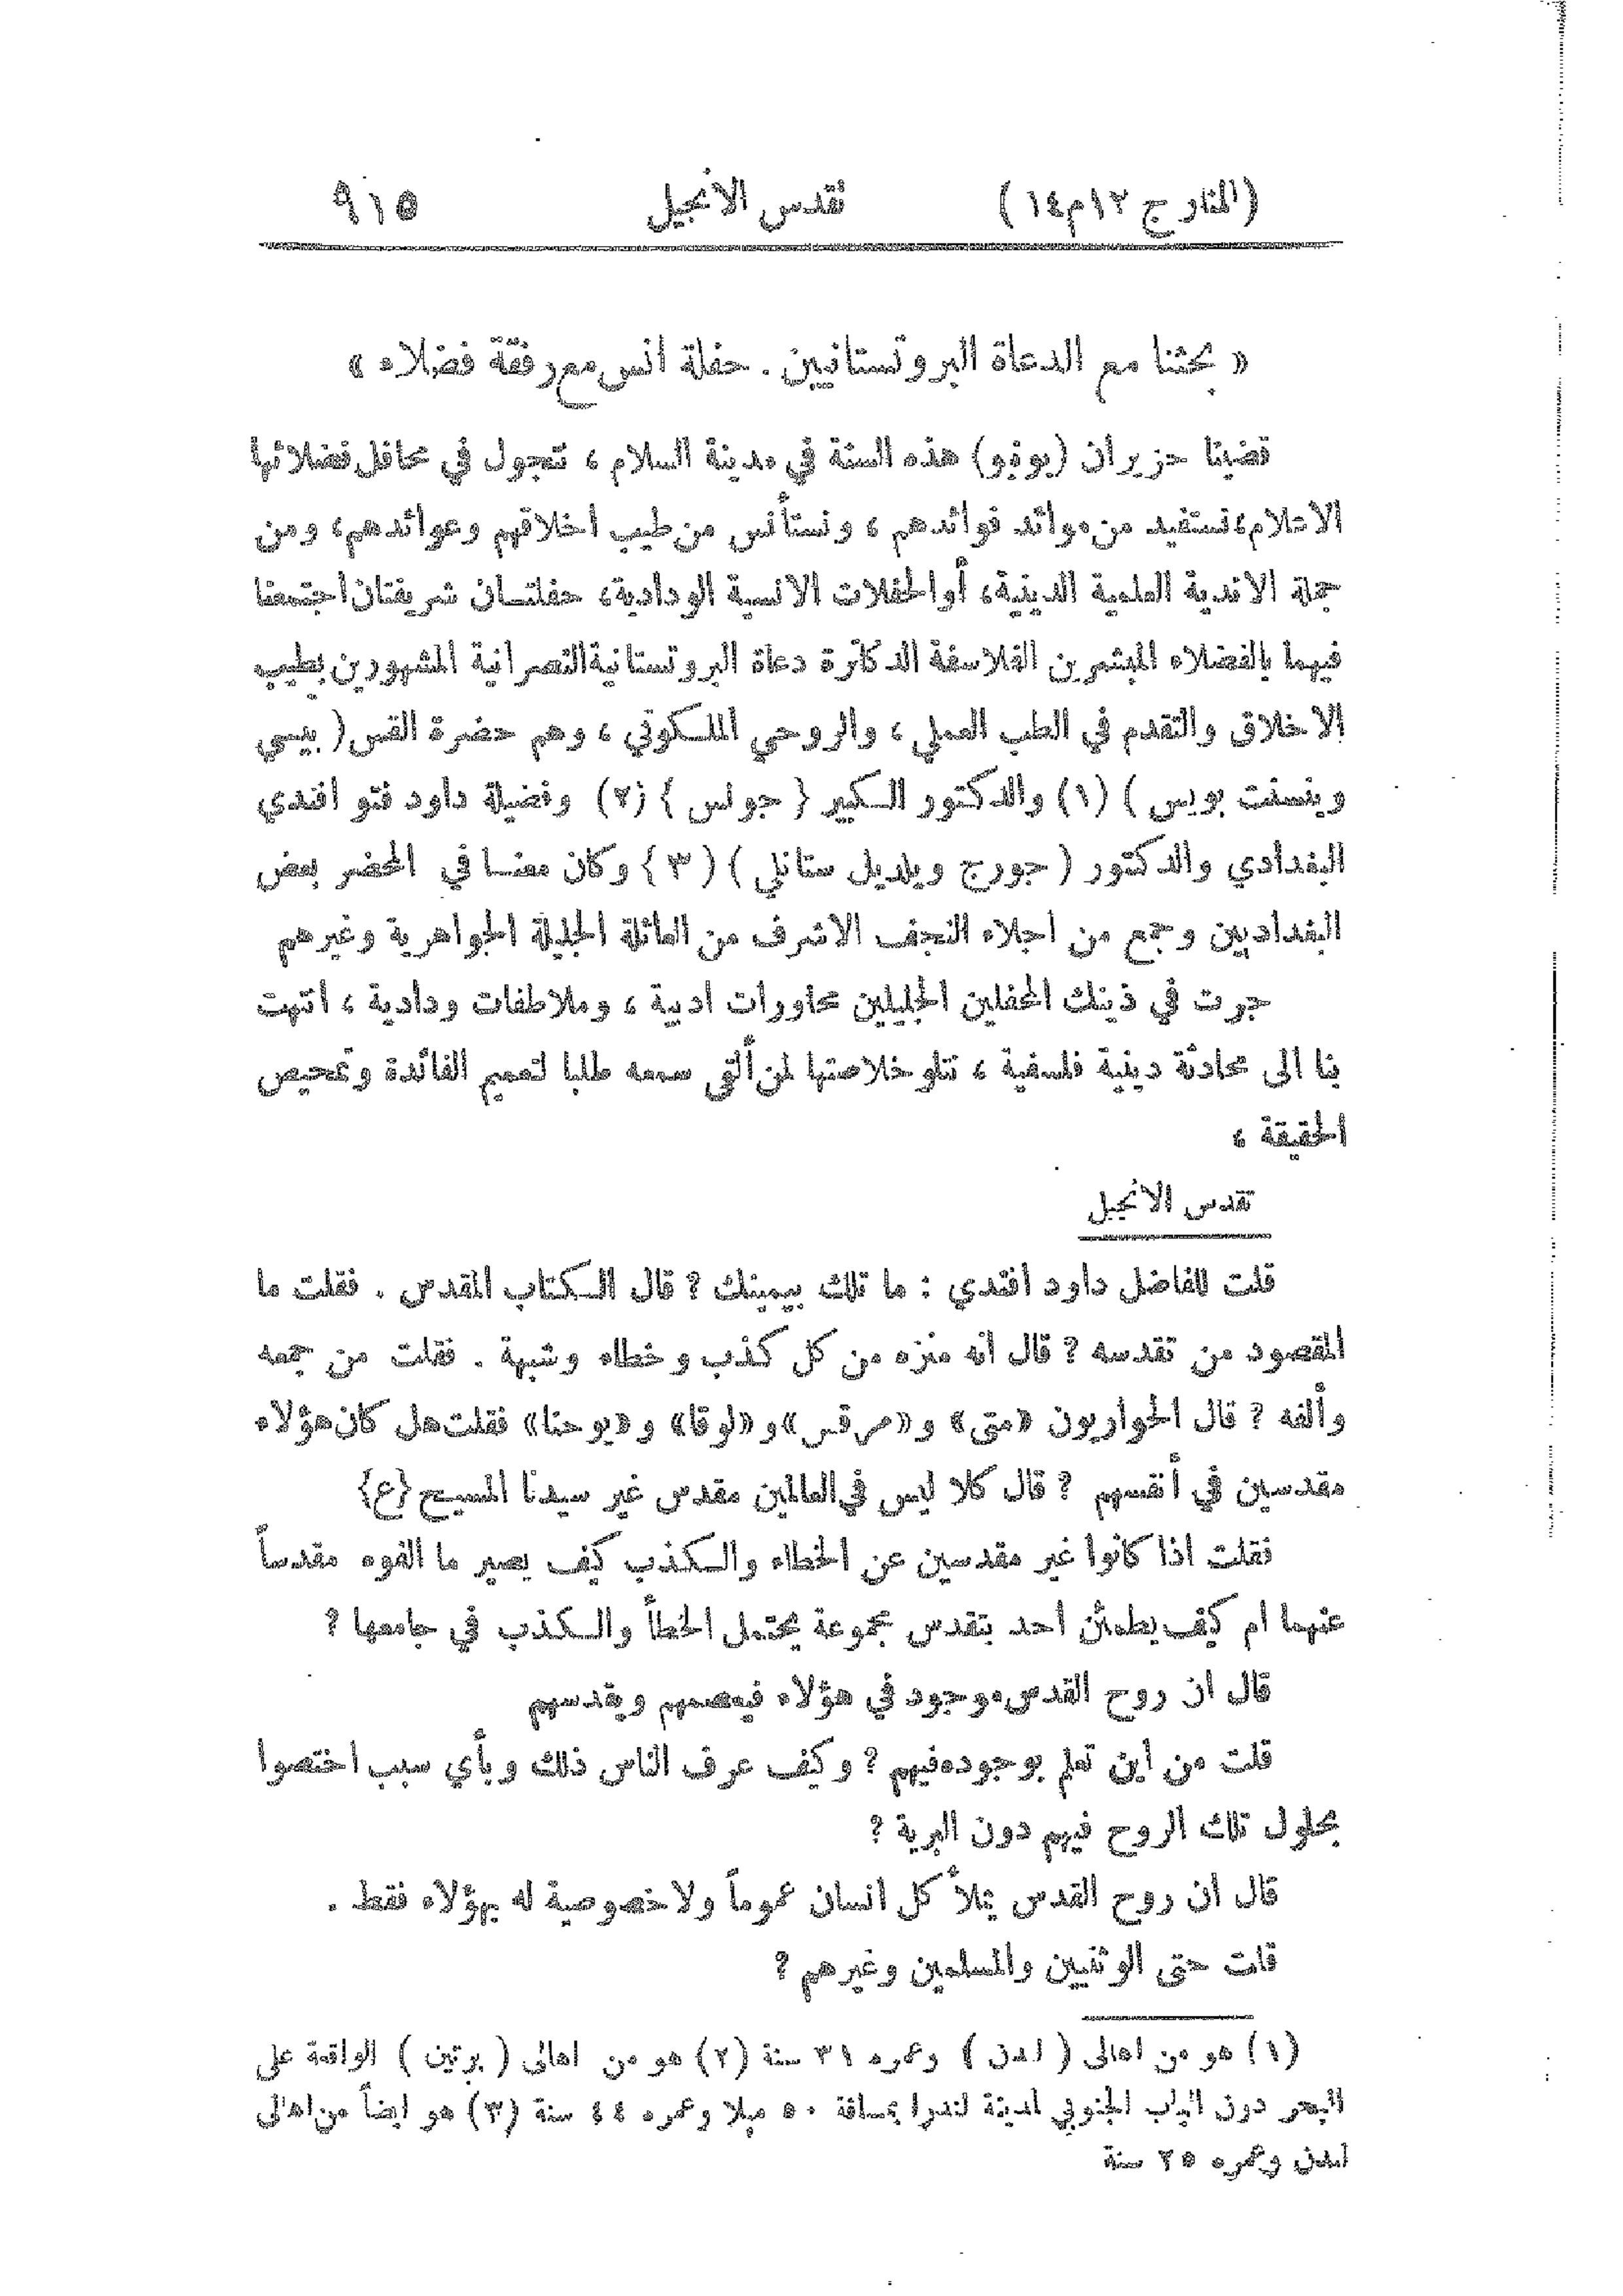 (المنار ج ١٢ م ١٤) تقدس الانجيل ٩١٥
« بحثنا مع الدعاة البروتستانيين . حفلة انس مع رفقة فضلاء »
قضينا حزيران (يونيو) هذه السنة في مدينة السلام ، نتجول في محافل فضلائها
الاعلام، نستفيد من موائد فوائدهم ، ونستأنس من طيب اخلاقهم وعوائدهم، ومن
جملة الاندية العلمية الدينية، أو الحفلات الانسية الودادية، حفلتـان شريفتان اجتمعنا
فيهما بالفضلاء المبشرين الفلاسفة الدكاترة دعاة البروتستانية النصرانية المشهورين بطيب
الاخلاق والتقدم في الطب العملي ، والروحي الملكوتي ، وهم حضرة القس ( بيسي
وينسنت بويس ) (١) والدكتور الكبير { جولس } (٢) وفضيلة داود فتو افندي
البغدادي والدكتور ( جورج ويلديل ستانلي ) (٣} وكان معنـا في المحضر بعض
البغداديين وجمع من اجلاء النجف الاشرف من العائلة الجليلة الجواهرية وغيرهم
جرت في ذينك المحفلين الجليلين محاورات ادبية ، وملاطفات ودادية ، انتهت
بنا الى محادثة دينية فلسفية ، نتلو خلاصتها لمن ألقى سمعه طلبا لتعميم الفائدة وتمحيص
الحقيقة ،
تقدس الانجيل
قلت للفاضل داود افندي : ما تلك بيمينك ? قال الكتاب المقدس . فقلت ما
المقصود من تقدسه ? قال انه منزه من كل كذب وخطاء وشبهة . فقلت من جمعه
وألفه ? قال الحواريون «متى» و«مرقس» و«لوقا» و«يوحنا» فقلت هل كان هؤلاء
مقدسين في أنفسهم ? قال كلا ليس في العالمين مقدس غير سيدنا المسيح {ع}
فقلت اذا كانوا غير مقدسين عن الخطاء والكذب كيف يصير ما الفوه مقدساً
عنهما ام كيف يطمئن احد بتقدس مجموعة يحتمل الخطأ والكذب في جامعها ?
قال ان روح القدس موجود في هؤلاء فيعصمهم ويقدسهم
قلت من اين تعلم بوجوده فيهم ? وكيف عرف الناس ذلك وبأي سبب اختصوا
بحلول تلك الروح فيهم دون البرية ?
قال ان روح القدس يملأ كل انسان عموماً ولا خصوصية له بهؤلاء فقط .
قلت حتى الوثنيين والمسلمين وغيرهم ?
(١) هو من اهالى ( لندن ) وعمره ٣١ سنة (٢) هو من اهالى ( برتين ) الواقعة على
البحر دون الباب الجنوبي لمدينة لندرا بمسافة ٥٠ ميلا وعمره ٤٤ سنة (٣) هو ايضاً من اهالى
لندن وعمره ٢٥ سنة